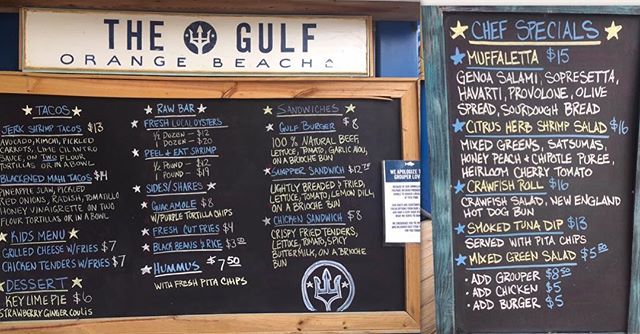 THE GULF
ORANGE BEACH
TACOS
JERK SHRIMP TACOS $13
AVOCADO, KIMCHI, PICKLED
CARROTS, LIME CILANTRO
SAUCE, ON TWO FLOUR
TORTILLAS OR IN A BOWL
BLACKENED MAHI TACOS $14
PINEAPPLE SLAW, PICKLED
RED ONIONS, RADISH, TOMATILLO
HONEY VINAIGRETTE ON TWO
FLOUR TORTILLAS OR IN A BOWL
KIDS MENU
GRILLED CHEESE W/FRIES $7
CHICKEN TENDERS W/FRIES $7
DESSERT
KEY LIME PIE $6
STRAWBERRY GINGER COULIS
RAW BAR
FRESH LOCAL OYSTERS
1/2 DOZEN - $12
1 DOZEN - $20
PEEL & EAT SHRIMP
1/2 POUND - $12
1 POUND - $19
SIDES/SHARES
GUACAMOLE $8
W/PURPLE TORTILLA CHIPS
FRESH CUT FRIES $4
BLACK BEANS & RICE $3.50
HUMMUS $7.50
WITH FRESH PITA CHIPS
SANDWICHES
GULF BURGER $8
100% NATURAL BEEF,
LETTUCE, TOMATO, GARLIC AIOLI,
ON A BRIOCHE BUN
SNAPPER SANDWICH $12.75
LIGHTLY BREADED & FRIED,
LETTUCE, TOMATO, LEMON DILL,
ON A BRIOCHE BUN
CHICKEN SANDWICH $8
CRISPY FRIED TENDERS,
LETTUCE, TOMATO, SPICY
BUTTERMILK, ON A BRIOCHE
BUN
WE APOLOGIZE
GROUPER LOV
CHEF SPECIALS
MUFFALETTA $15
GENOA SALAMI, SOPRESETTA,
HAVARTI, PROVOLONE, OLIVE
SPREAD, SOURDOUGH BREAD
CITRUS HERB SHRIMP SALAD $16
MIXED GREENS, SATSUMAS,
HONEY PEACH & CHIPOTLE PUREE,
HEIRLOOM CHERRY TOMATO
CRAWFISH ROLL $16
CRAWFISH SALAD, NEW ENGLAND
HOT DOG BUN
SMOKED TUNA DIP $13
SERVED WITH PITA CHIPS
MIXED GREEN SALAD $5.50
• ADD GROUPER $8.50
• ADD CHICKEN $5
• ADD BURGER $5